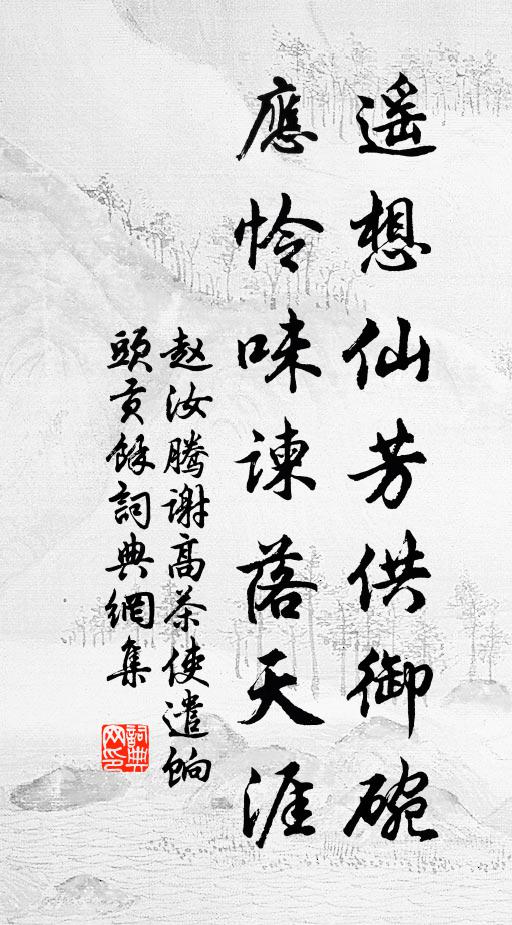 遥想仙芳供御碗
應怜味諫落天涯
赵汝腾謝高茶使遣餉
頭贡餘詞典網集
詞典网印